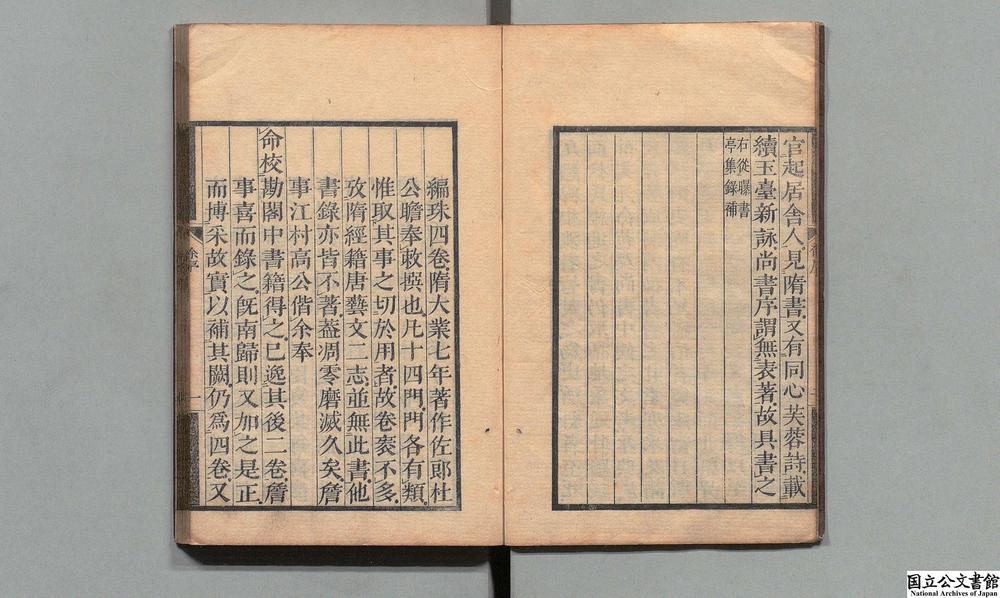 官起居舍人見隋書又有同心芙蓉詩載
續玉臺新詠尚書序謂無表著故具書之
右從曝書
亭集錄補
編珠四卷隋大業七年著作佐郎杜
公瞻奉敕撰也凡十四門門各有類
惟取其事之切於用者故卷袠不多
攷隋經籍唐藝文二志並無此書他
書錄亦皆不著蓋凋零磨滅久矣詹
事江村高公偕余奉
命校勘閣中書籍得之已逸其後二卷詹
事喜而錄之旣南歸則又加之是正
而博采故實以補其闕仍爲四卷又
徐序
一
国立公文書館
National Archives of Japan